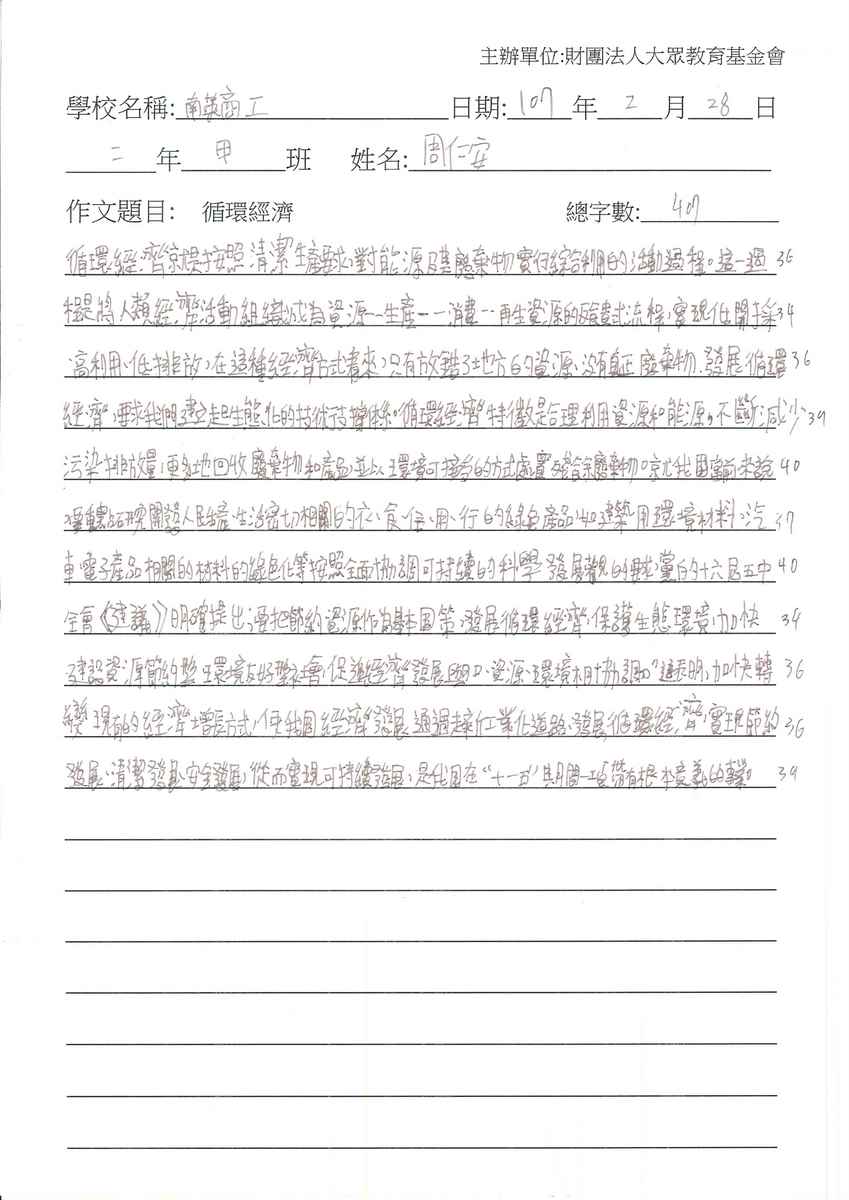 主辦單位:財團法人大眾教育基金會
學校名稱:南英商工 日期:107年2月28日
二年甲班 姓名:周仁安
作文題目: 循環經濟 總字數:407
循環經濟就是按照清潔生產要求,對能源及其廢棄物實行綜合利用的活動過程。這一過 36
程是將人類經濟活動組織成為資源--生產--消費--再生資源的式流程,實現低開採 34
、高利用、低排放,在這種經濟方式看來,只有放錯了地方的資源,沒有真正廢棄物,發展循環 36
經濟,要求我們建立起生態化的技術支撐體系。循環經濟特徵是合理利用資源和能源,不斷減少 39
污染排放量,更多地回收廢棄物和產品,並以環境可接受的方式處置殘餘廢棄物。就我國當前來說 40
要重點研究開發人民生產、生活密切相關的衣、食、住、用、行的綠色產品,如建築用環境材料。汽 37
車電子產品相關的材料的綠色化等按照全面協調可持續的科學發展觀的要求,黨的十六屆五中 40
全會《建議》明確提出:要把節約資源作為基本國策,發展循環經濟,保護生態環境,加快 34
建設資源節約型、環境友好型社會,促進經濟發展與人口、資源、環境相協調。"這表明,加快轉 36
變現有的經濟增長方式,使我國經濟發展通過走新工業化道路,發展循環經濟,實現節約 36
發展、清潔發展、安全發展,從而實現可持續發展,是我國在"十一五"期間一項帶有根本意義的事業。 39